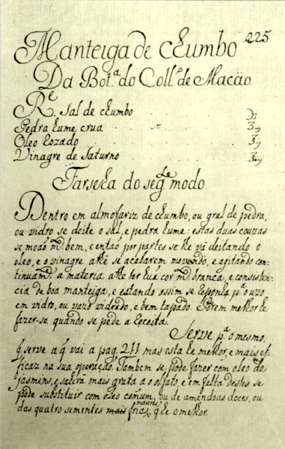 225
Manteiga de cEumbo
Da Bot.ª do Coll.º de Macáo
Re. Sal de cEumbo
Pedra Eume crua
Oleo Rozado
Vinagre de Saturno
Farseha do seg.te modo
Dentro em almofaroz de cEumbo, ou gral de pedra,
ou vidro se deite o sal, e pedra Eume: estas duas couzas
se moaõ m.to bem, e entaõ por partes se lhe vá deitando o
oleo, e o vinagre athé se acabarem movendo, e agitando con-
tinuam.te a materia athe ter hua cor m.to branca, e consisten-
cia de boa manteiga, e estando assim se cOponha p.ª o uzo
em vidro, ou vazo vidrado, e bem tapado. Porem melhor he
fazer-se quando se pede a Receita.
Serve p.ª o mesmo,
q̃ serve a q̃ vai a pag. 211 mas esta he melhor, e mais ef-
ficaz na sua operaçaõ. Tambem se póde fazer com oleo de
jasmins, e sahira mais grata ao olfato, e em falta destes se
póde substituir com oleo comum, ou de amendoas doces, ou
das quatro sementes mais frias mayores, q̃ he o melhor.